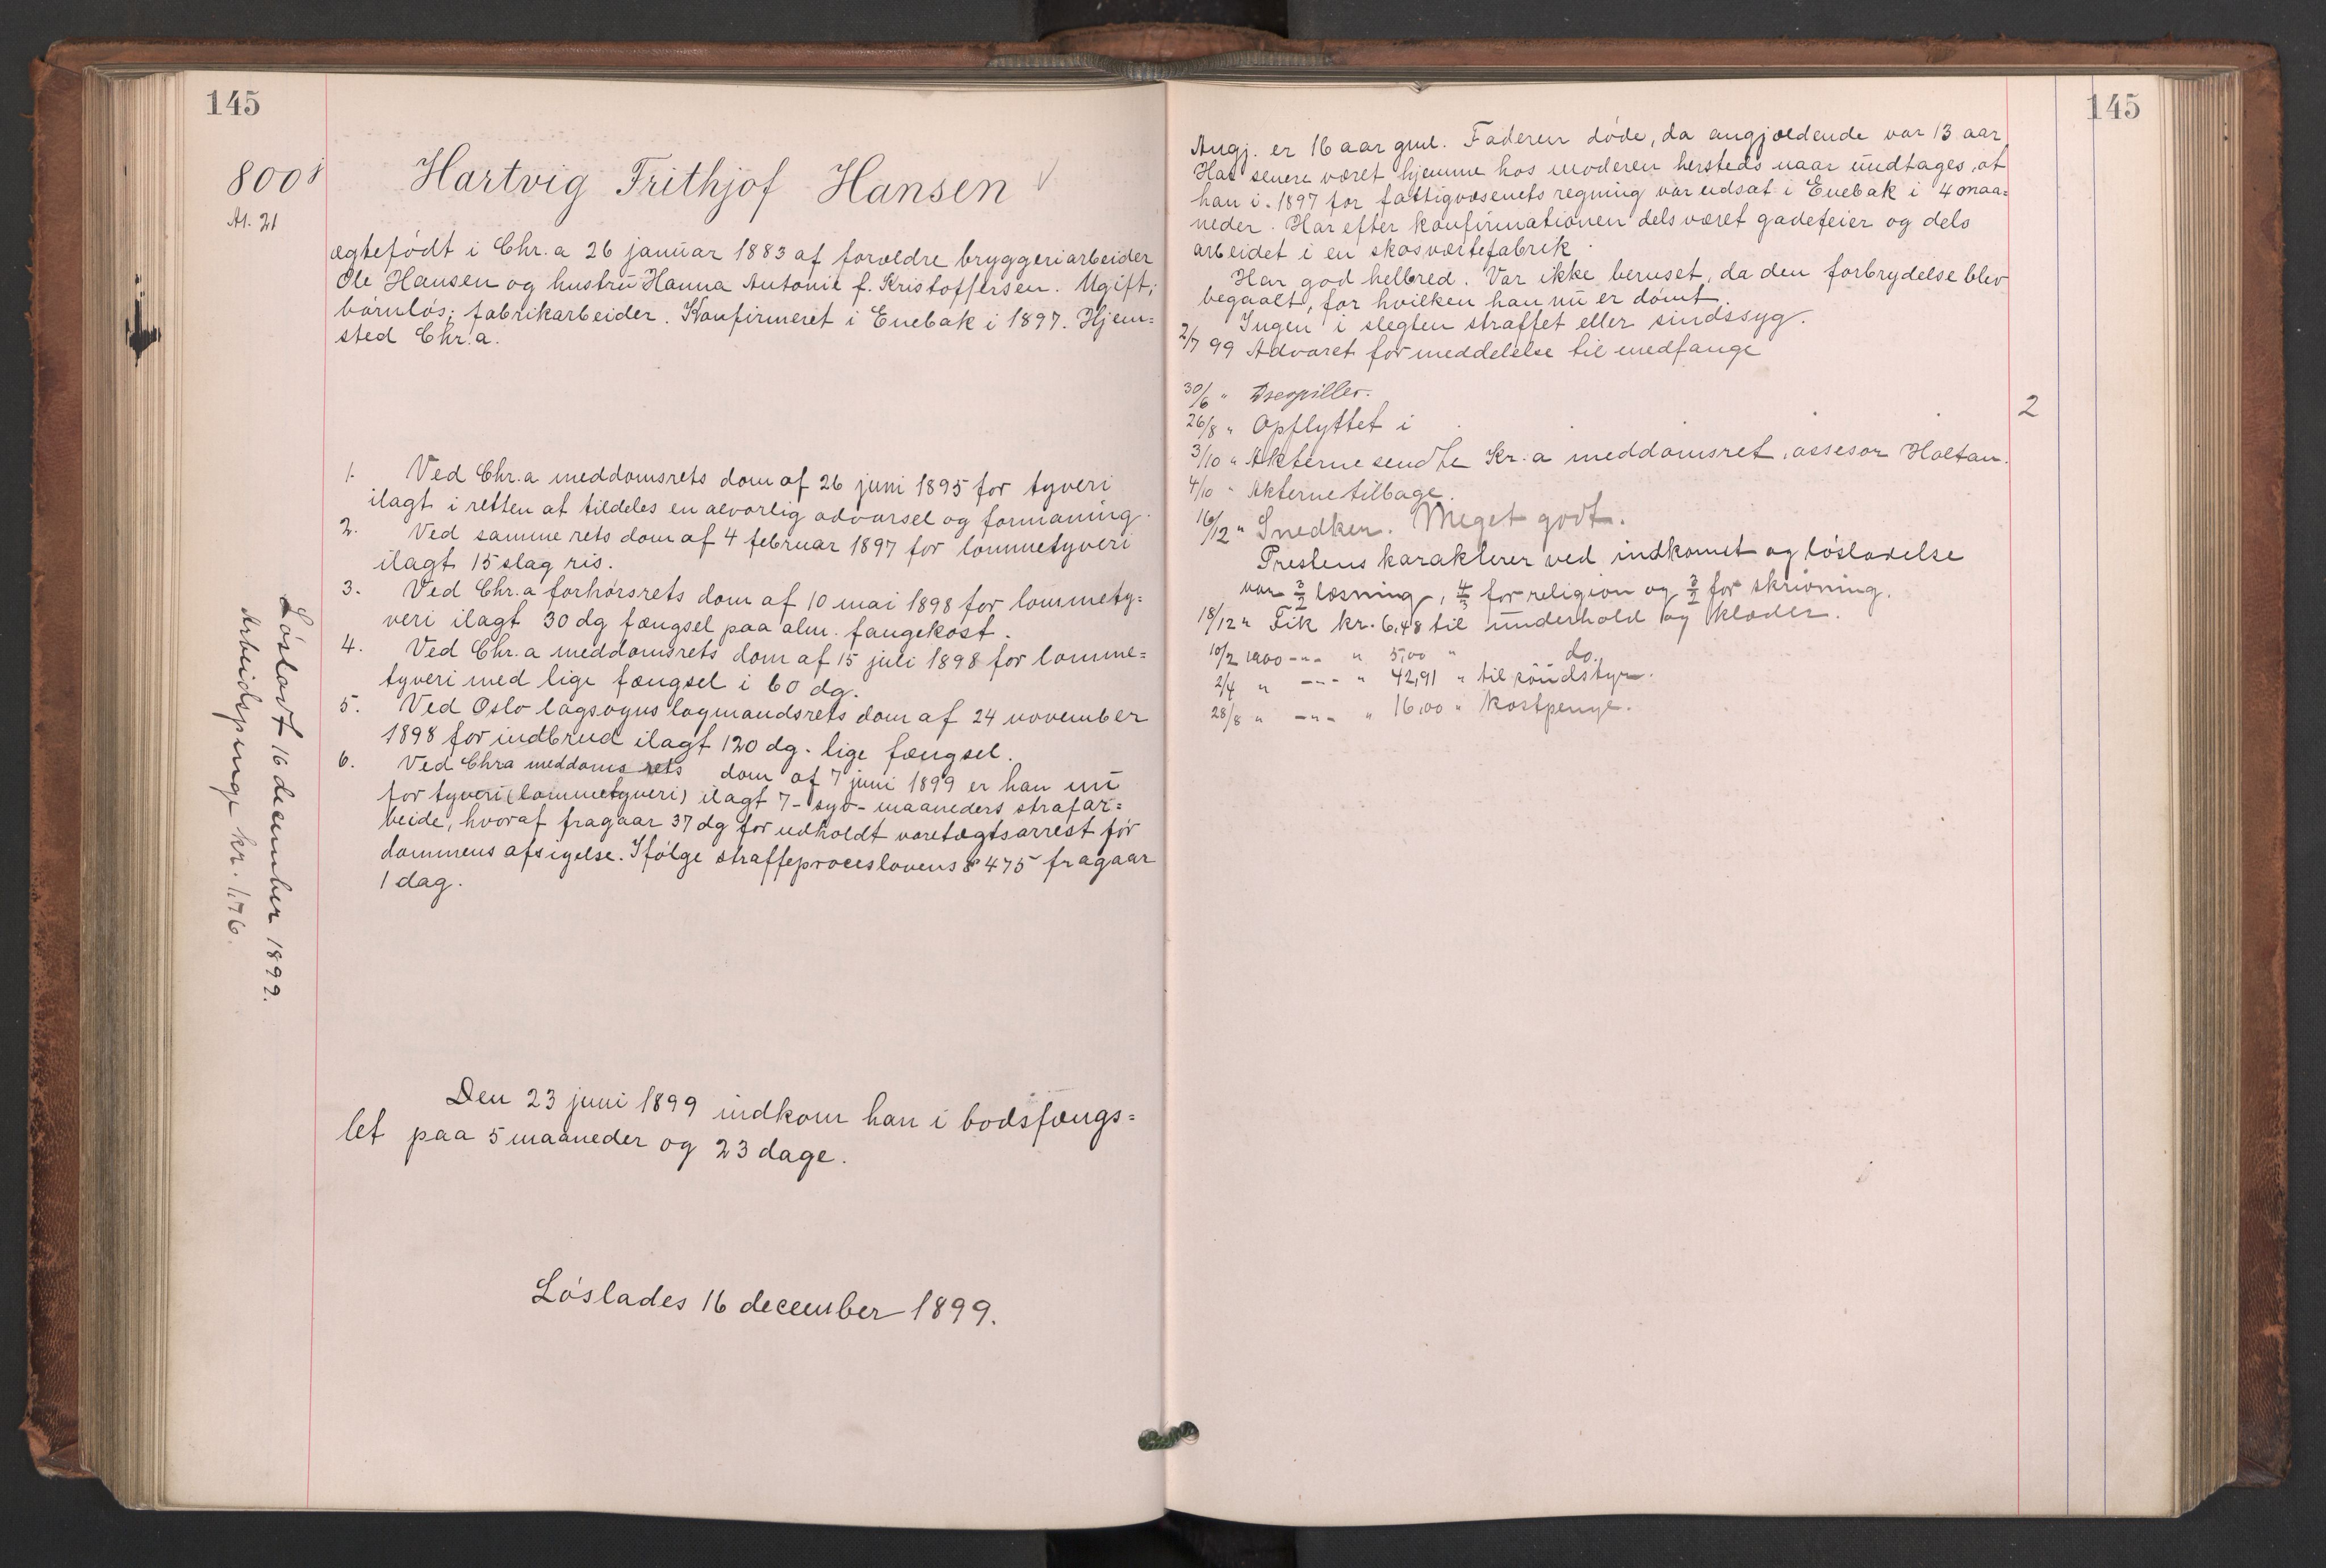 145
8001
At. 21
Hartvig Frithjof Hansen
ægtefødt i Chr.a 26 januar 1883 af forældre bryggeriarbeider
Ole Hansen og hustru Hanna Antonie f. Kristoffersen. Ugift;
barnløs; fabrikarbeider. Konfirmeret i Enebak i 1897. Hjem=
sted Chr.a.
1. Ved Chr.a meddomsrets dom af 26 juni 1895 for tyveri
ilagt i retten at tildeles en alvorlig advarsel og formaning.
2. Ved samme rets dom af 4 februar 1897 for lommetyveri
ilagt 15 slag ris.
3. Ved Chr.a forhørsrets dom af 10 mai 1898 for lommety=
veri ilagt 30 dg fængsel paa alm. fangekost.
4. Ved Chr.a meddomsrets dom af 15 juli 1898 for lomme=
tyveri med lige fængsel i 60 dg.
5. Ved Oslo lagsogns lagmandsrets dom af 24 november
1898 for indbrud ilagt 120 dg. lige fængsel.
6. Ved Chra meddomsrets dom af 7 juni 1899 er han nu
for tyveri (lommetyveri) ilagt 7 - syv - maaneders strafar=
beide, hvoraf fragaar 37 dg for udholdt varetægtsarrest før
dommens afsigelse. Ifølge straffeproceslovens § 475 fragaar
1 dag.
Løsladt 16 december 1899.
Arbeidspenge kr. 1,76.
Den 23 juni 1899 indkom han i bodsfængs=
let paa 5 maaneder og 23 dage.
Løslades 16 december 1899.
145
Angj. er 16 aar gml. Faderen døde, da angjældende var 13 aar
Har senere været hjemme hos moderen hersteds naar undtages, at
han i 1897 for fattigvæsenets regning var udsat i Enebak i 4 maa=
neder. Har efter konfirmationen dels været gadefeier og dels
arbeidet i en skosværtefabrik.
Har god helbred. Var ikke beruset, da den forbrydelse blev
begaaet, for hvilken han nu er dømt.
Ingen i slegten straffet eller sindssyg.
2/7 99 Advaret for meddelelse til medfange
30/6 "
26/8 " Opflyttet i 2
3/10 " Akterne sendte Kr.a meddomsret, assesor Holtan.
4/10 " Akterne tilbage.
16/12 " Snedker. Meget godt.
Prestens karakterer ved indkomst og løsladelse
var 3/2 læsning, 4/3 for religion og 3/2 for skrivning.
18/12 " Fik kr. 6,48 til underhold og klæder.
10/2 1900 -"- " 5,00 " do.
2/4 " -"- " 42,91 " til udstyr.
28/8 " -"- " 16,00 " kostpenge.